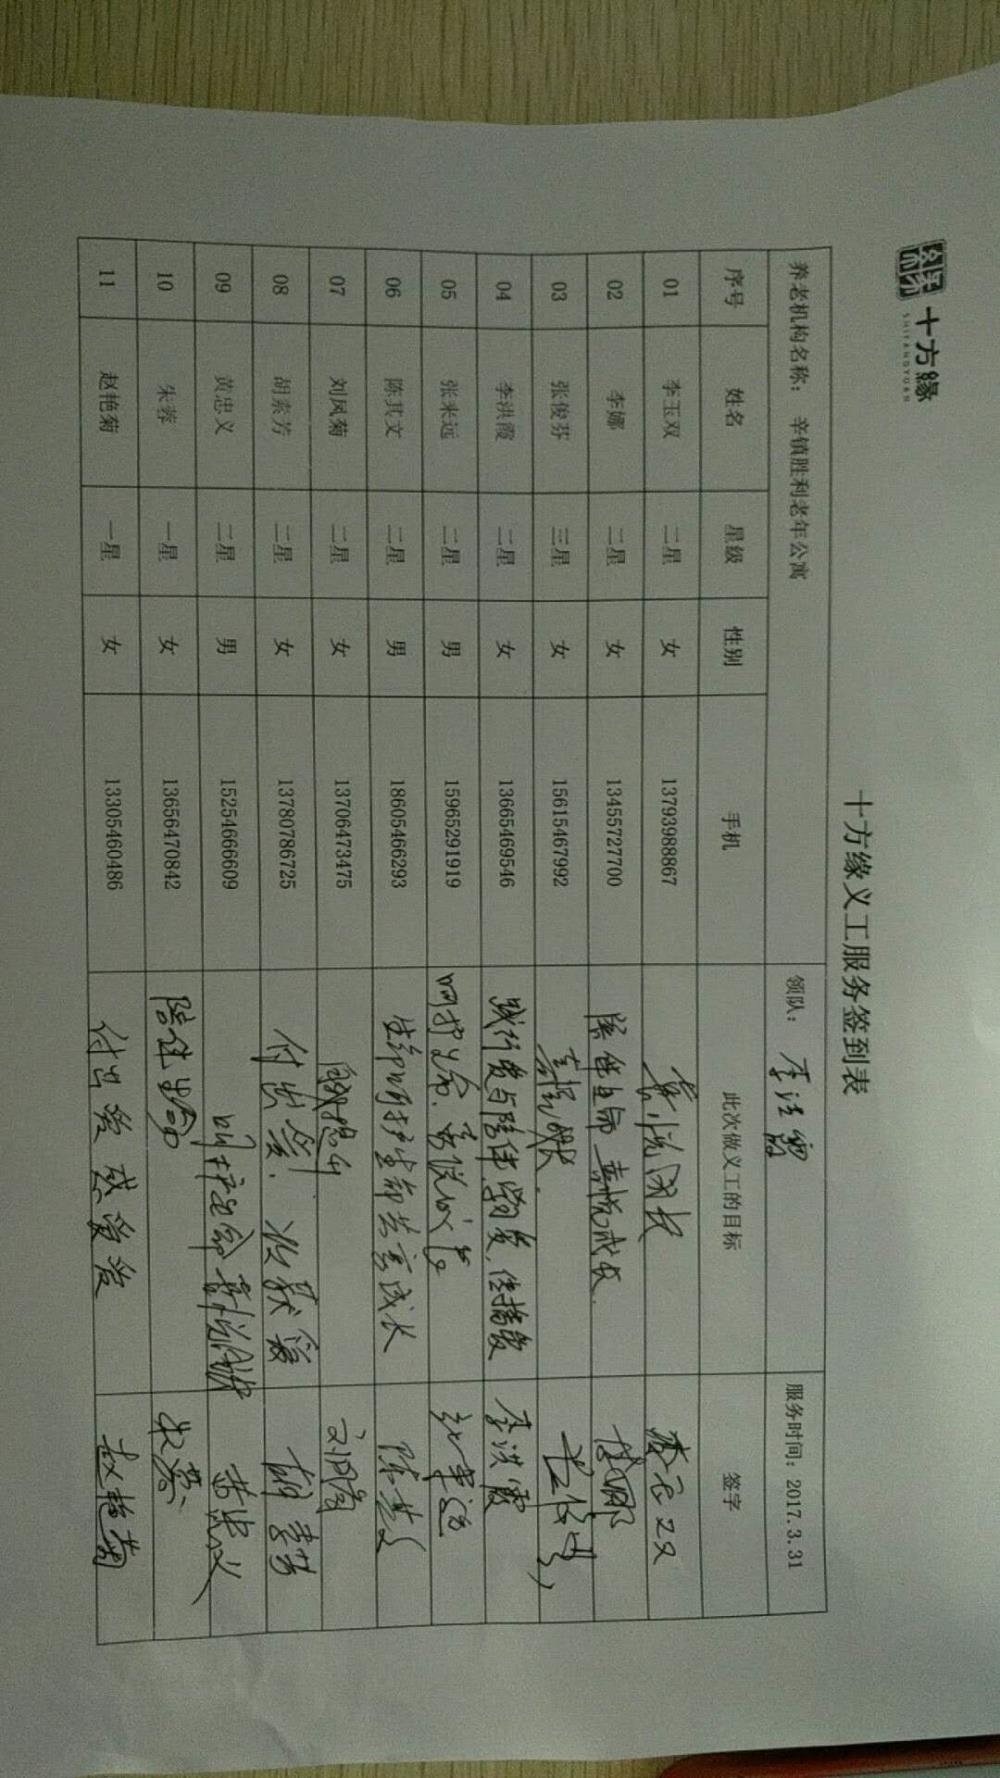 十方緣
SHIFANGYUAN
十方缘义工服务签到表
养老机构名称： 辛镇胜利老年公寓 领队： 李洪霞 服务时间：2017.3.31
序号 姓名 星级 性别 手机 此次做义工的目标 签字
01 李玉双 二星 女 13793988867 喜悦成长 李玉双
02 李娜 二星 女 13455727700 陪伴生命 喜悦成长 李娜
03 张俊芬 三星 女 15615467992 喜悦
04 李洪霞 二星 女 13665469546 践行爱与陪伴,学习爱,传播爱 李洪霞
05 张来远 二星 男 15965291919 呵护生命.喜悦 张来远
06 陈其文 二星 男 18605466293 生命呵护生命共享成长 陈其文
07 刘凤菊 二星 女 13706473475 刘凤菊
08 胡素芳 二星 女 13780786725 付出爱.收获爱 胡素芳
09 黄忠义 二星 男 15254666609 呵护生命喜悦 黄忠义
10 朱蓉 一星 女 13656470842 生命 朱蓉
11 赵艳菊 一星 女 13305460486 付出爱 感受爱 赵艳菊